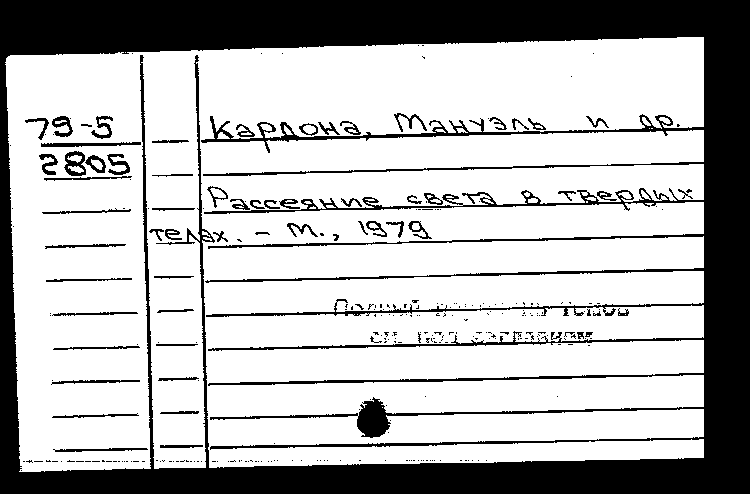 79-5 Кардона, Мануэль и др.
2805
Рассеяние света в твердых
телах. - М., 1979
Полный томов
см. под заглавием